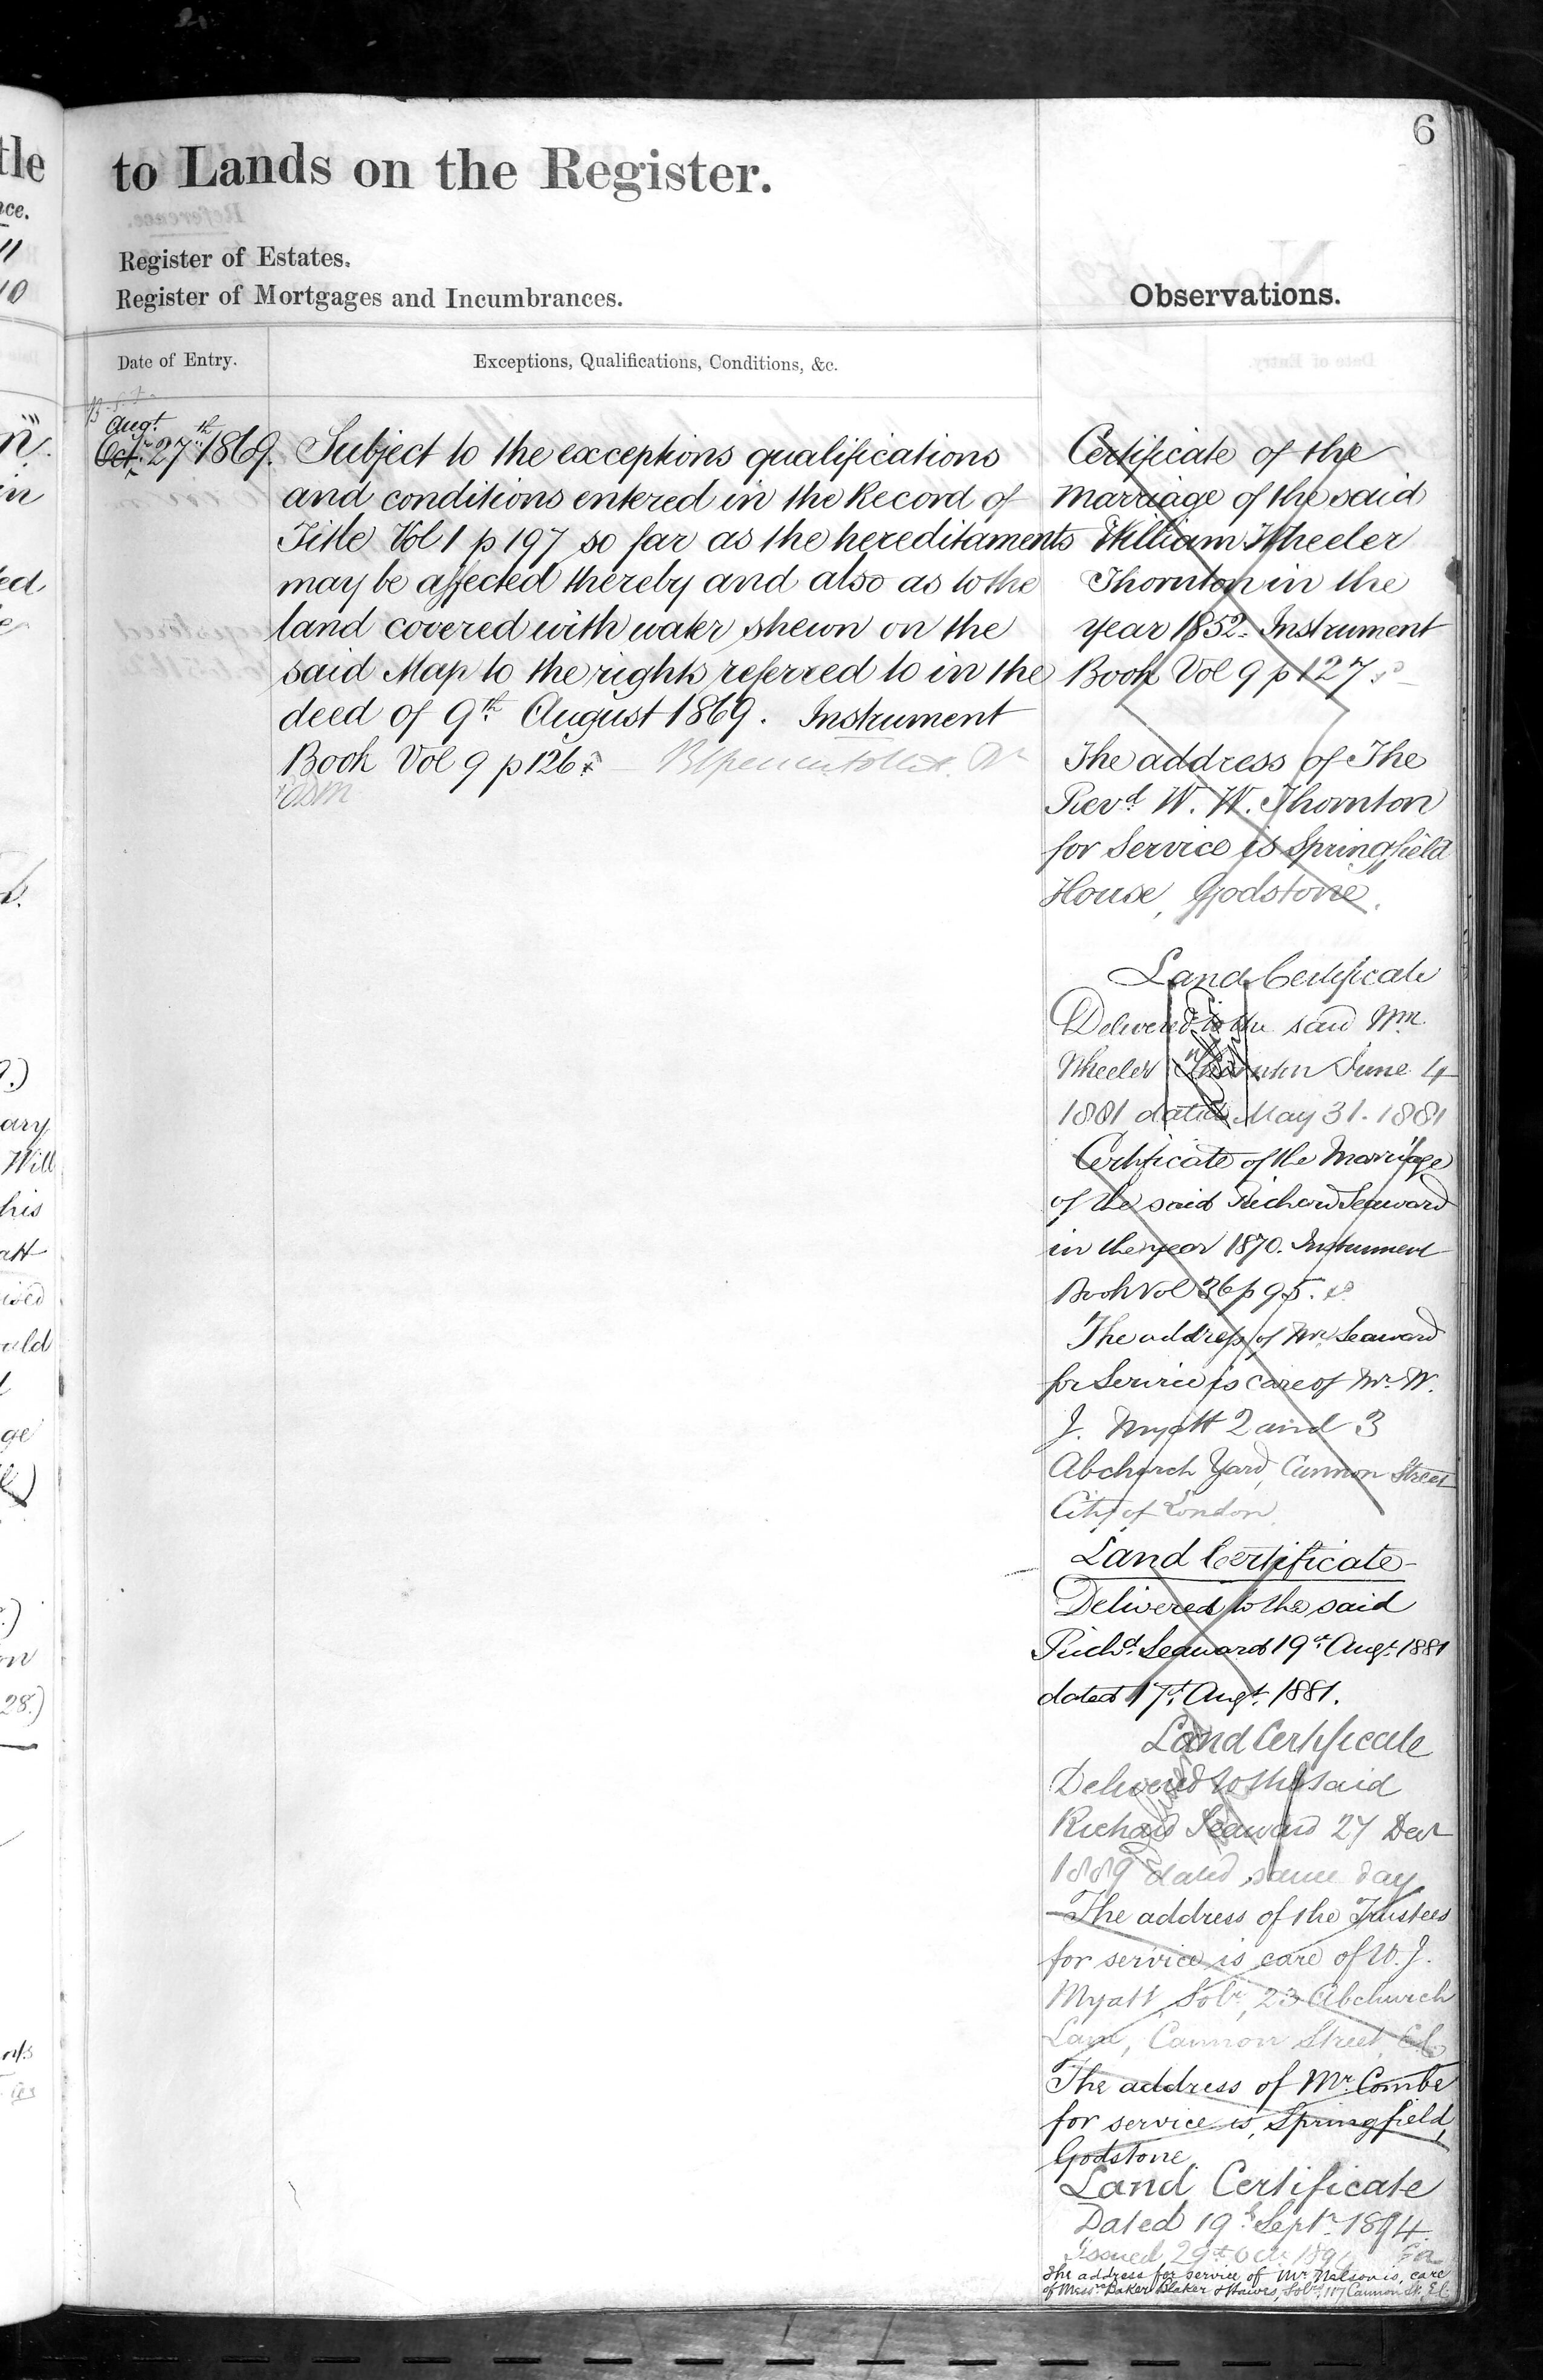 6
to Lands on the Register.
Register of Estates.
Register of Mortgages and Incumbrances.
Observations.
Date of Entry.
Exceptions, Qualifications, Conditions, &c.
Augt
Octr 27th 1869.
Subject to the exceptions qualifications
and conditions entered in the Record of
Title Vol 1 p 197 so far as the hereditaments
may be affected thereby and also as to the
land covered with water shewn on the
said Map to the rights referred to in the
deed of 9th August 1869. Instrument
Book Vol 9 p 126
Certificate of the
Marriage of the said
William Wheeler
Thornton in the
year 1852. Instrument
Book Vol 9 p 127
The address of The
Revd W. W. Thornton
for Service is Springfield
House, Godstone.
Land Certificate
Delivered to the said Wm
Wheeler Thornton June 4
1881 dated May 31. 1881
Certificate of the Marriage
of the said Richard Seaward
in the year 1870. Instrument
Book Vol 36 p 95.
The address of Mr Seaward
for Service is care of Mr W.
J. Myatt 2 and 3
Abchurch Yard, Cannon Street
City of London
Land Certificate
Delivered to the said
Richd Seaward 19th Augt 1881
dated 17th Augt 1881.
Land Certificate
Delivered to the said
Richard Seaward 27 Decr
1889 dated same day
The address of the Trustees
for service is care of W. J.
Myatt, Solr, 23 Abchurch
Lane, Cannon Street, E.C.
The address of Mr Combe
for service is, Springfield,
Godstone.
Land Certificate
Dated 19th Septr 1894.
Issued 29th Octr
The address for service of Mr Nelson is, care
of Messrs Baker Blaker & Hawes, Solrs, 117 Cannon St. E.C.